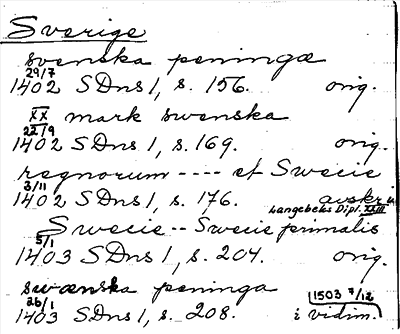 Sverige
svenska peninga
29/7
1402 SDns 1, s. 156. orig.
XX mark swenska
22/9
1402 SDns 1, s. 169. orig.
regnorum ---- et Swecie
3/11
1402 SDns 1, s. 176. avskr i
Langebeks Dipl. XXIII
Swecie -- Swecie
5/1
1403 SDns 1, s. 204. orig.
swænska peninga
26/1
1403 SDns 1, s. 208. i vidim.
1503 7/12